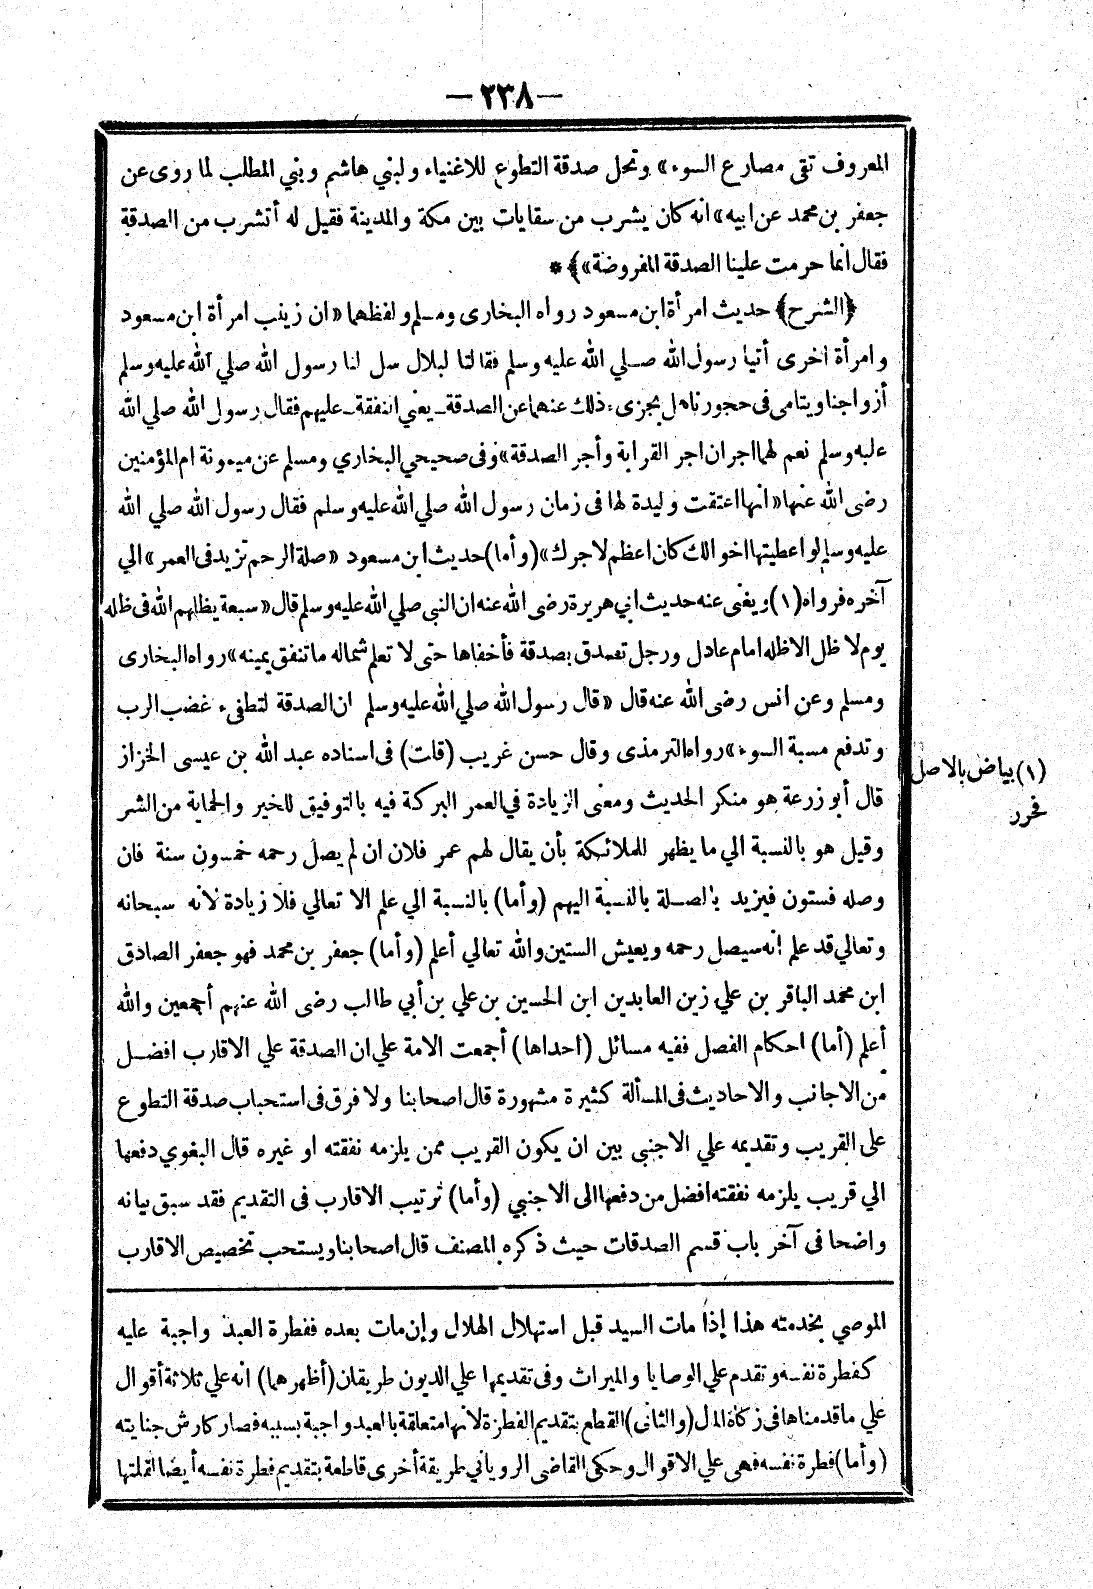 — ٢٣٨ —
المعروف تقى مصارع السوء» وتحل صدقة التطوع للاغنياء ولبني هاشم وبني المطلب لما روى عن
جعفر بن محمد عن ابيه» انه كان يشرب من سقايات بين مكة والمدينة فقيل له أتشرب من الصدقة
فقال انما حرمت علينا الصدقة المفروضة»﴾ *
﴿الشرح﴾ حديث امرأة ابن مسعود رواه البخارى ومسلم ولفظهما «ان زينب امرأة ابن مسعود
وامرأة اخرى أتيا رسول الله صلي الله عليه وسلم فقالتا لبلال سل لنا رسول الله صلي الله عليه وسلم
أزواجنا ويتامى فى حجورنا هل يجزىء ذلك عنهما عن الصدقة ـ يعني النفقة ـ عليهم فقال رسول الله صلي الله
عليه وسلم نعم لهما اجران اجر القرابة وأجر الصدقة» وفى صحيحي البخاري ومسلم عن ميمونة ام المؤمنين
رضى الله عنها «انها اعتقت وليدة لها فى زمان رسول الله صلي الله عليه وسلم فقال رسول الله صلي الله
عليه وسلم لو اعطيتها اخوالك كان اعظم لاجرك» (وأما) حديث ابن مسعود «صلة الرحم تزيد فى العمر» الي
آخره فرواه (١) ويغنى عنه حديث ابي هريرة رضى الله عنه ان النبى صلي الله عليه وسلم قال «سبعة يظلهم الله فى ظله
يوم لا ظل الا ظله امام عادل ورجل تصدق بصدقة فأخفاها حتى لا تعلم شماله ما تنفق يمينه» رواه البخارى
ومسلم وعن انس رضى الله عنه قال «قال رسول الله صلي الله عليه وسلم ان الصدقة لتطفىء غضب الرب
وتدفع مسبة السوء» رواه الترمذى وقال حسن غريب (قلت) فى اسناده عبد الله بن عيسى الخزاز
قال أبو زرعة هو منكر الحديث ومعنى الزيادة في العمر البركة فيه بالتوفيق للخير والحماية من الشر
وقيل هو بالنسبة الي ما يظهر للملائكة بأن يقال لهم عمر فلان ان لم يصل رحمه خمسون سنة فان
وصله فستون فيزيد بالصلة بالنسبة اليهم (وأما) بالنسبة الي علم الله تعالي فلا زيادة لانه سبحانه
وتعالي قد علم انه سيصل رحمه ويعيش الستين والله تعالي أعلم (وأما) جعفر بن محمد فهو جعفر الصادق
ابن محمد الباقر بن علي زين العابدين ابن الحسين بن علي بن أبي طالب رضى الله عنهم أجمعين والله
أعلم (أما) احكام الفصل ففيه مسائل (احداها) أجمعت الامة علي ان الصدقة علي الاقارب افضل
من الاجانب والاحاديث فى المسألة كثيرة مشهورة قال اصحابنا ولا فرق فى استحباب صدقة التطوع
على القريب وتقديمه علي الاجنبى بين ان يكون القريب ممن يلزمه نفقته او غيره قال البغوي دفعها
الي قريب يلزمه نفقته افضل من دفعها الى الاجنبي (وأما) ترتيب الاقارب فى التقديم فقد سبق بيانه
واضحا فى آخر باب قسم الصدقات حيث ذكره المصنف قال اصحابنا ويستحب تخصيص الاقارب
(١) بياض بالاصل
فحرر
الموصي بخدمته هذا إذا مات السيد قبل استهلال الهلال وإن مات بعده ففطرة العبد واجبة عليه
كفطرة نفسه وتقدم علي الوصايا والميراث وفى تقديمها علي الديون طريقان (أظهرهما) انه علي ثلاثة أقوال
علي ما قدمناها فى زكاة المال (والثانى) القطع بتقديم الفطرة لانها متعلقة بالعبد واجبة بسببه فصار كارش جنايته
(وأما) فطرة نفسه فهى علي الاقوال وحكى القاضى الروياني طريقة أخرى قاطعة بتقديم فطرة نفسه أيضا لقلتها